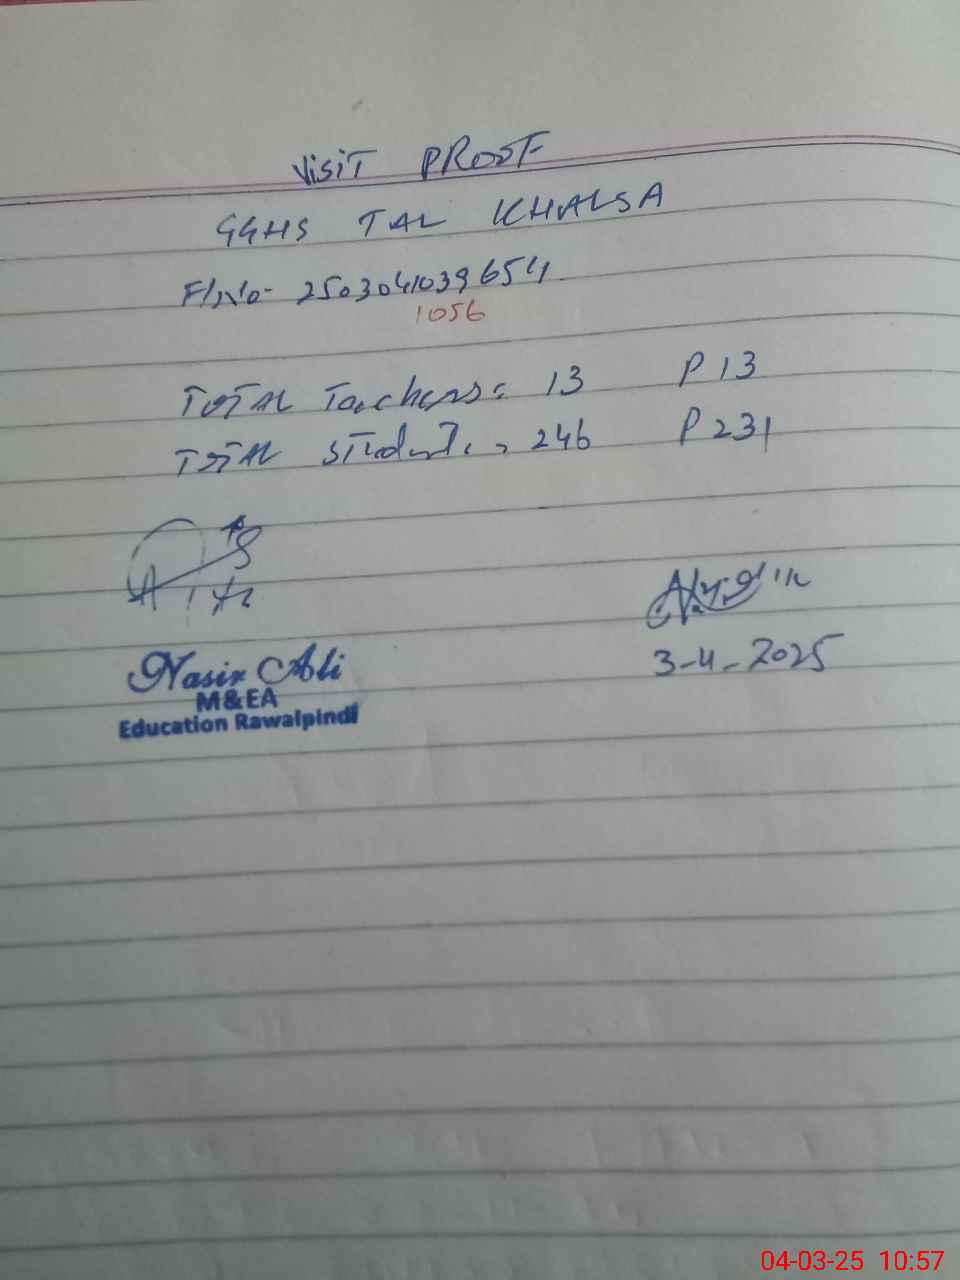 VISIT PROOF
GGHS TAL KHALSA
F/No- 2503041039654
1056
TOTAL Teachers = 13 P 13
TOTAL Students = 246 P 231
Nasir Ali
M&EA
Education Rawalpindi
3-4-2025
04-03-25 10:57